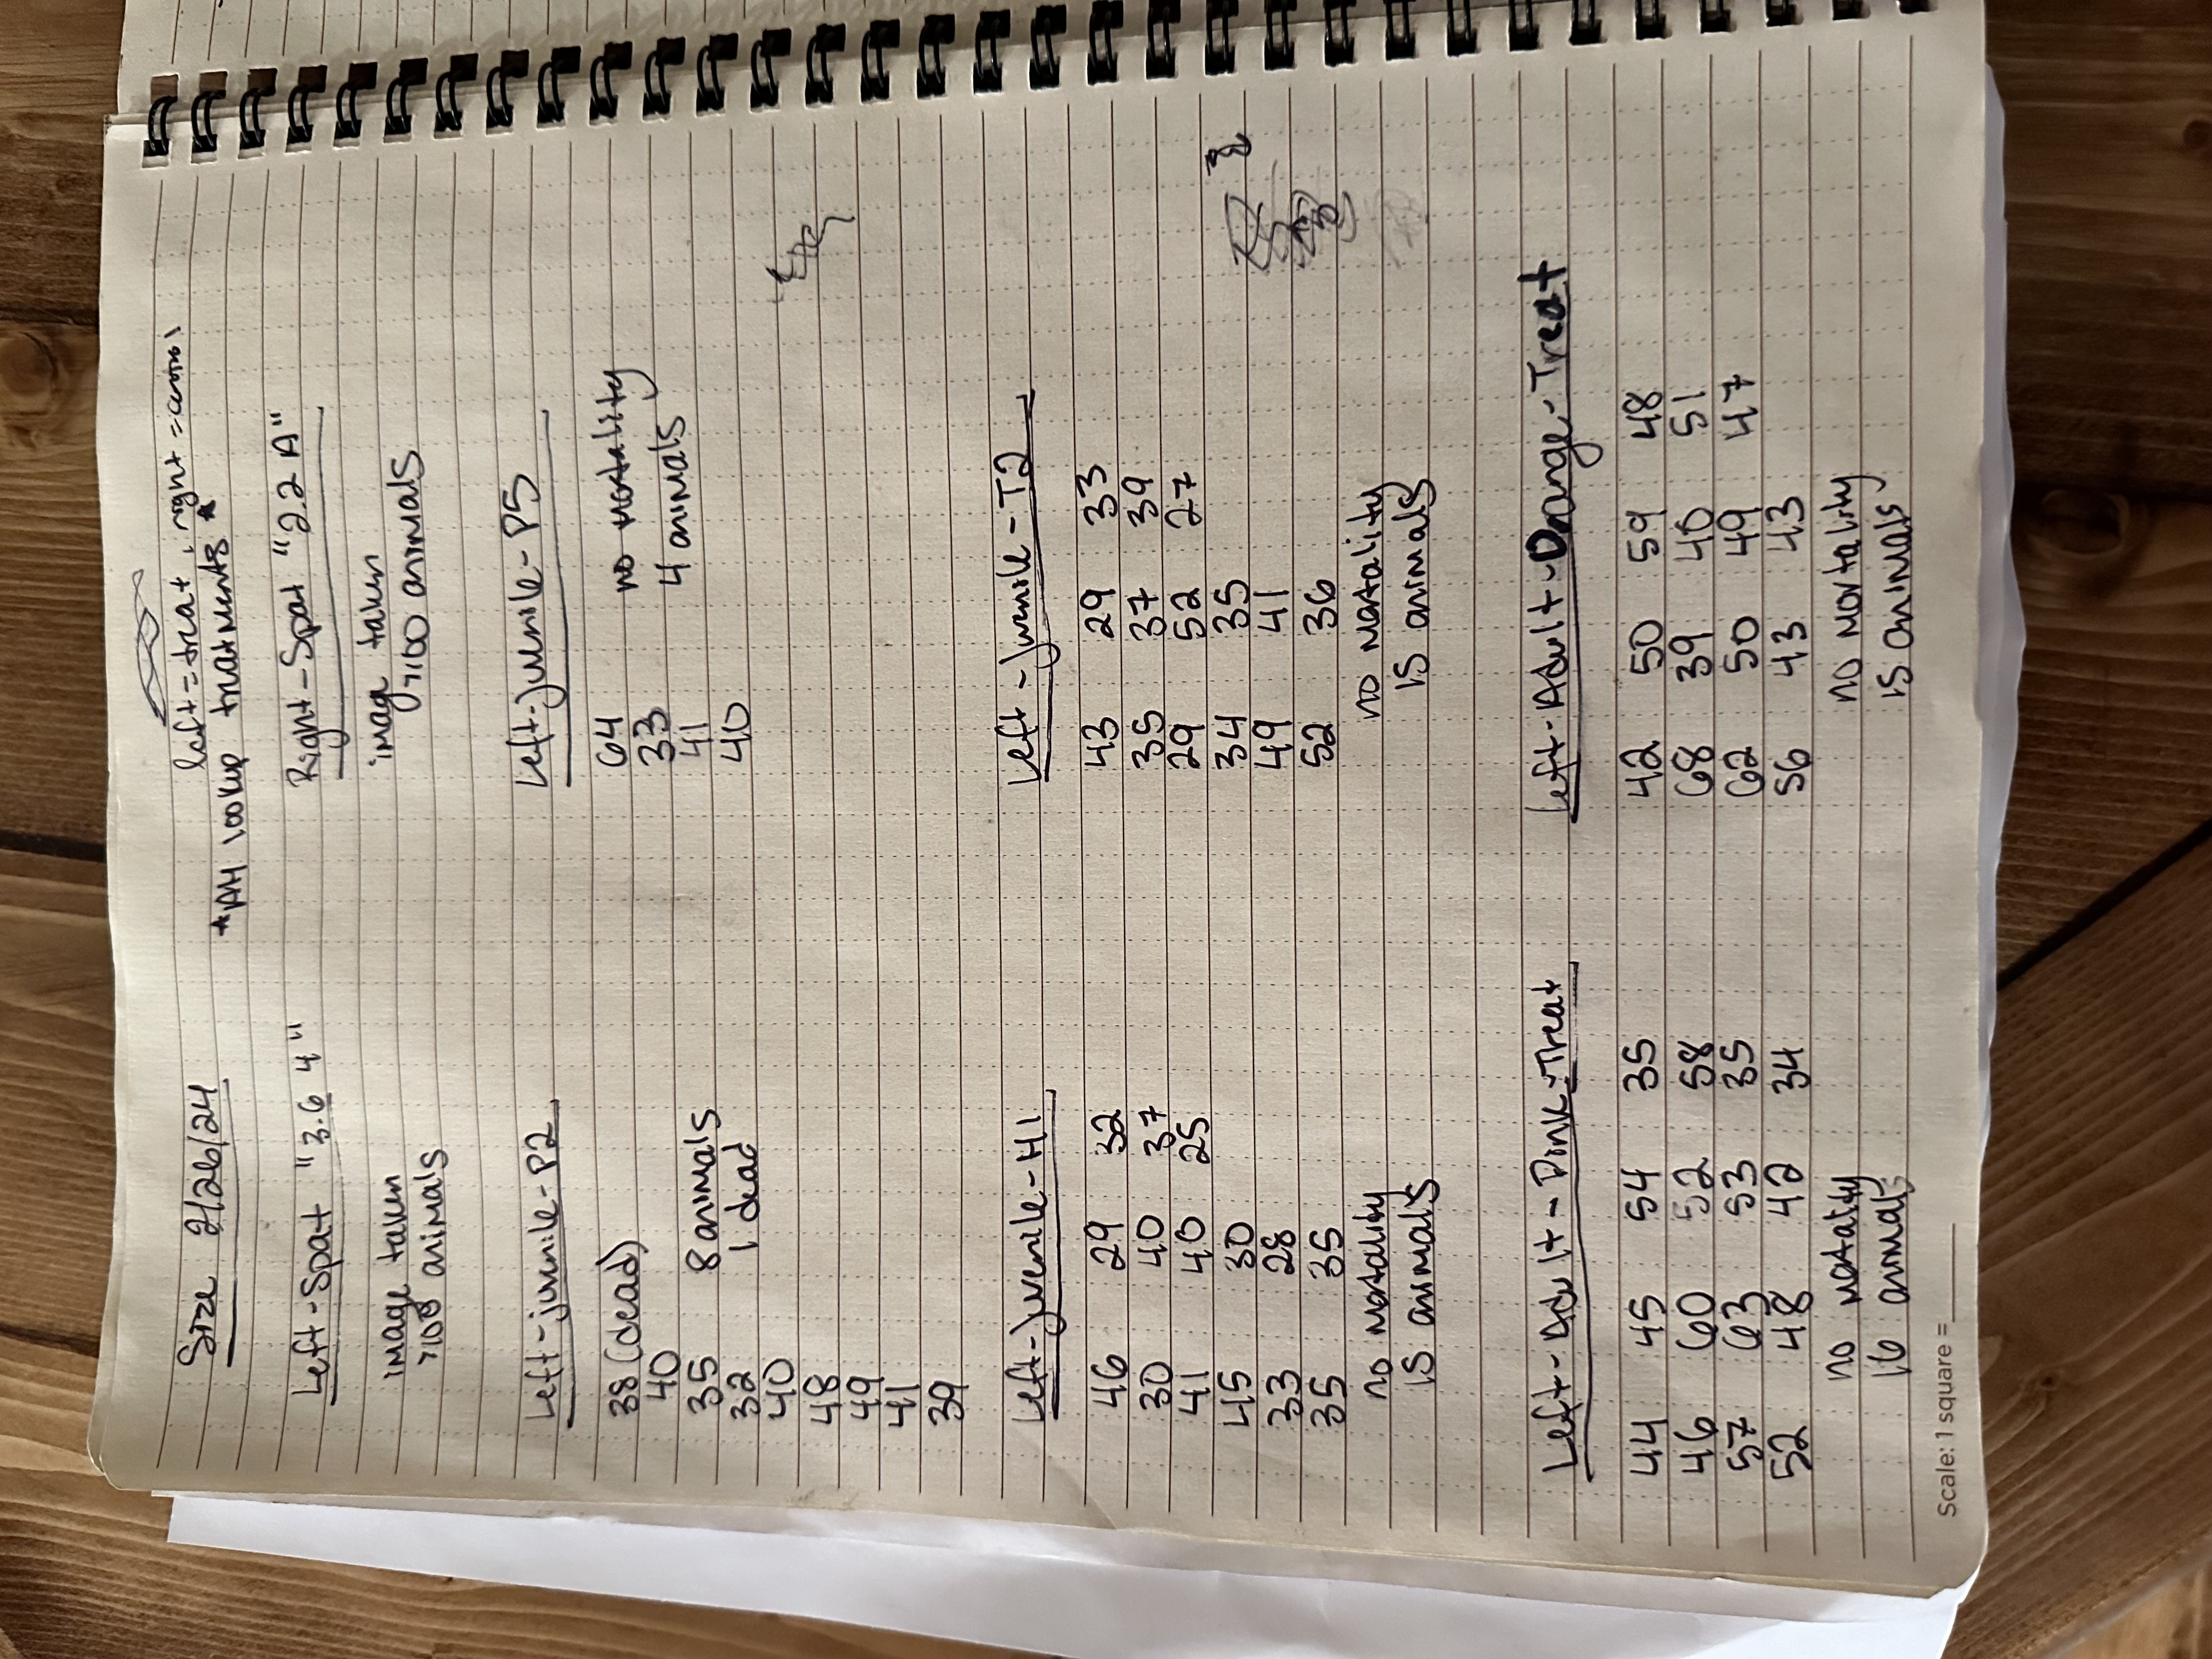 Size 2/26/24
left = treat, right = control
*AH lookup treatments*
Left-Spat "3.6 4"
image taken
>100 animals
Right-Spat "2.2 A"
image taken
>100 animals
Left-juvenile-P2
38 (dead)
40
35 8 animals
32 1 dead
40
48
49
41
39
Left-juvenile-P5
64 no mortality
33
41 4 animals
40
Left-juvenile-H1
46 29 32
30 40 37
41 40 25
45 30
33 28
35 35
no mortality
15 animals
Left-juvenile-T2
43 29 33
35 37 39
29 52 27
34 35
49 41
52 36
no mortality
15 animals
Left-Adult-Pink-Treat
44 45 54 35
46 60 52 58
57 63 53 35
52 48 42 34
no mortality
16 animals
Left-Adult-Orange-Treat
42 50 59 48
68 39 40 51
62 50 49 47
56 43 43
no mortality
15 animals
Scale: 1 square =